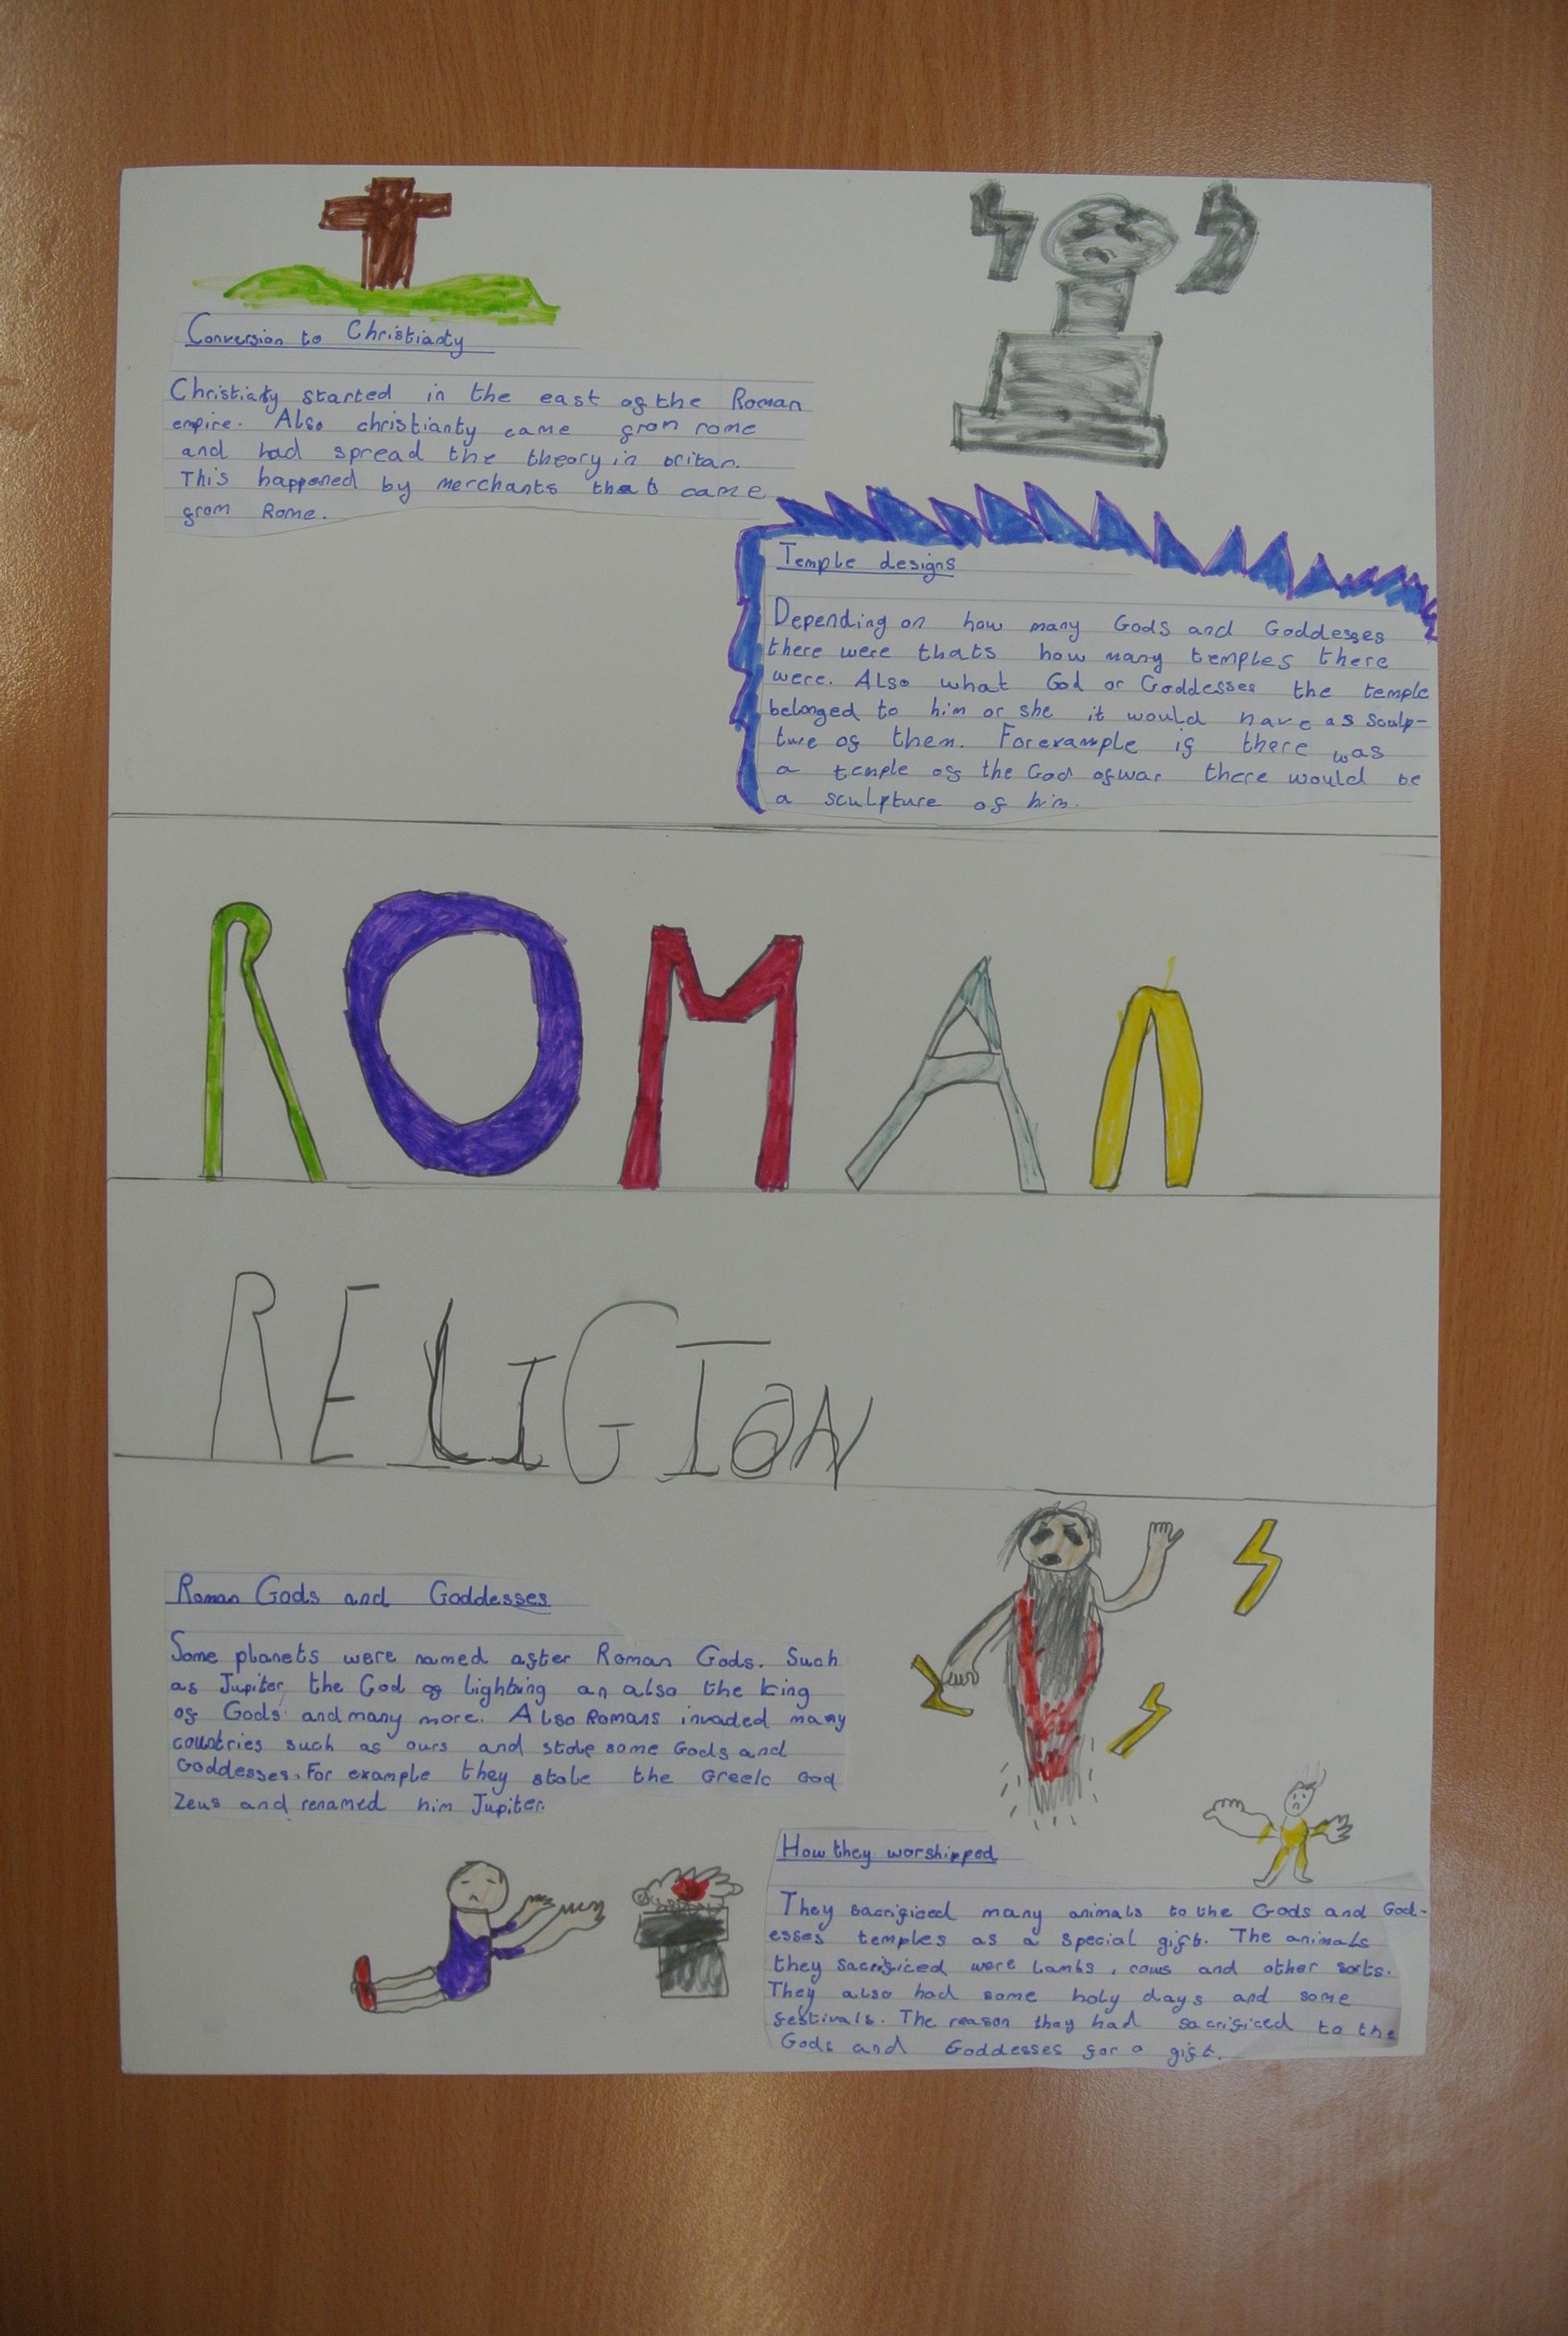 Conversion to Christianty
Christianty started in the east of the Roman
empire. Also christianty came from rome
and had spread the theory in britan.
This happened by merchants that came
from Rome.
Temple designs
Depending on how many Gods and Goddesses
there were thats how many temples there
were. Also what God or Goddesses the temple
belonged to him or she it would have as sculp-
ture of them. For example if there was
a temple of the God of war there would be
a sculpture of him.
ROMAN
RELIGION
Roman Gods and Goddesses
Some planets were named after Roman Gods. Such
as Jupiter, the God of lightning an also the king
of Gods and many more. Also Romans invaded many
countries such as ours and stole some Gods and
Goddesses. For example they stole the Greek God
Zeus and renamed him Jupiter.
How they worshipped
They sacrificed many animals to the Gods and God-
esses temples as a special gift. The animals
they sacrificed were lambs, cows and other sorts.
They also had some holy days and some
festivals. The reason they had sacrificed to the
Gods and Goddesses for a gift.